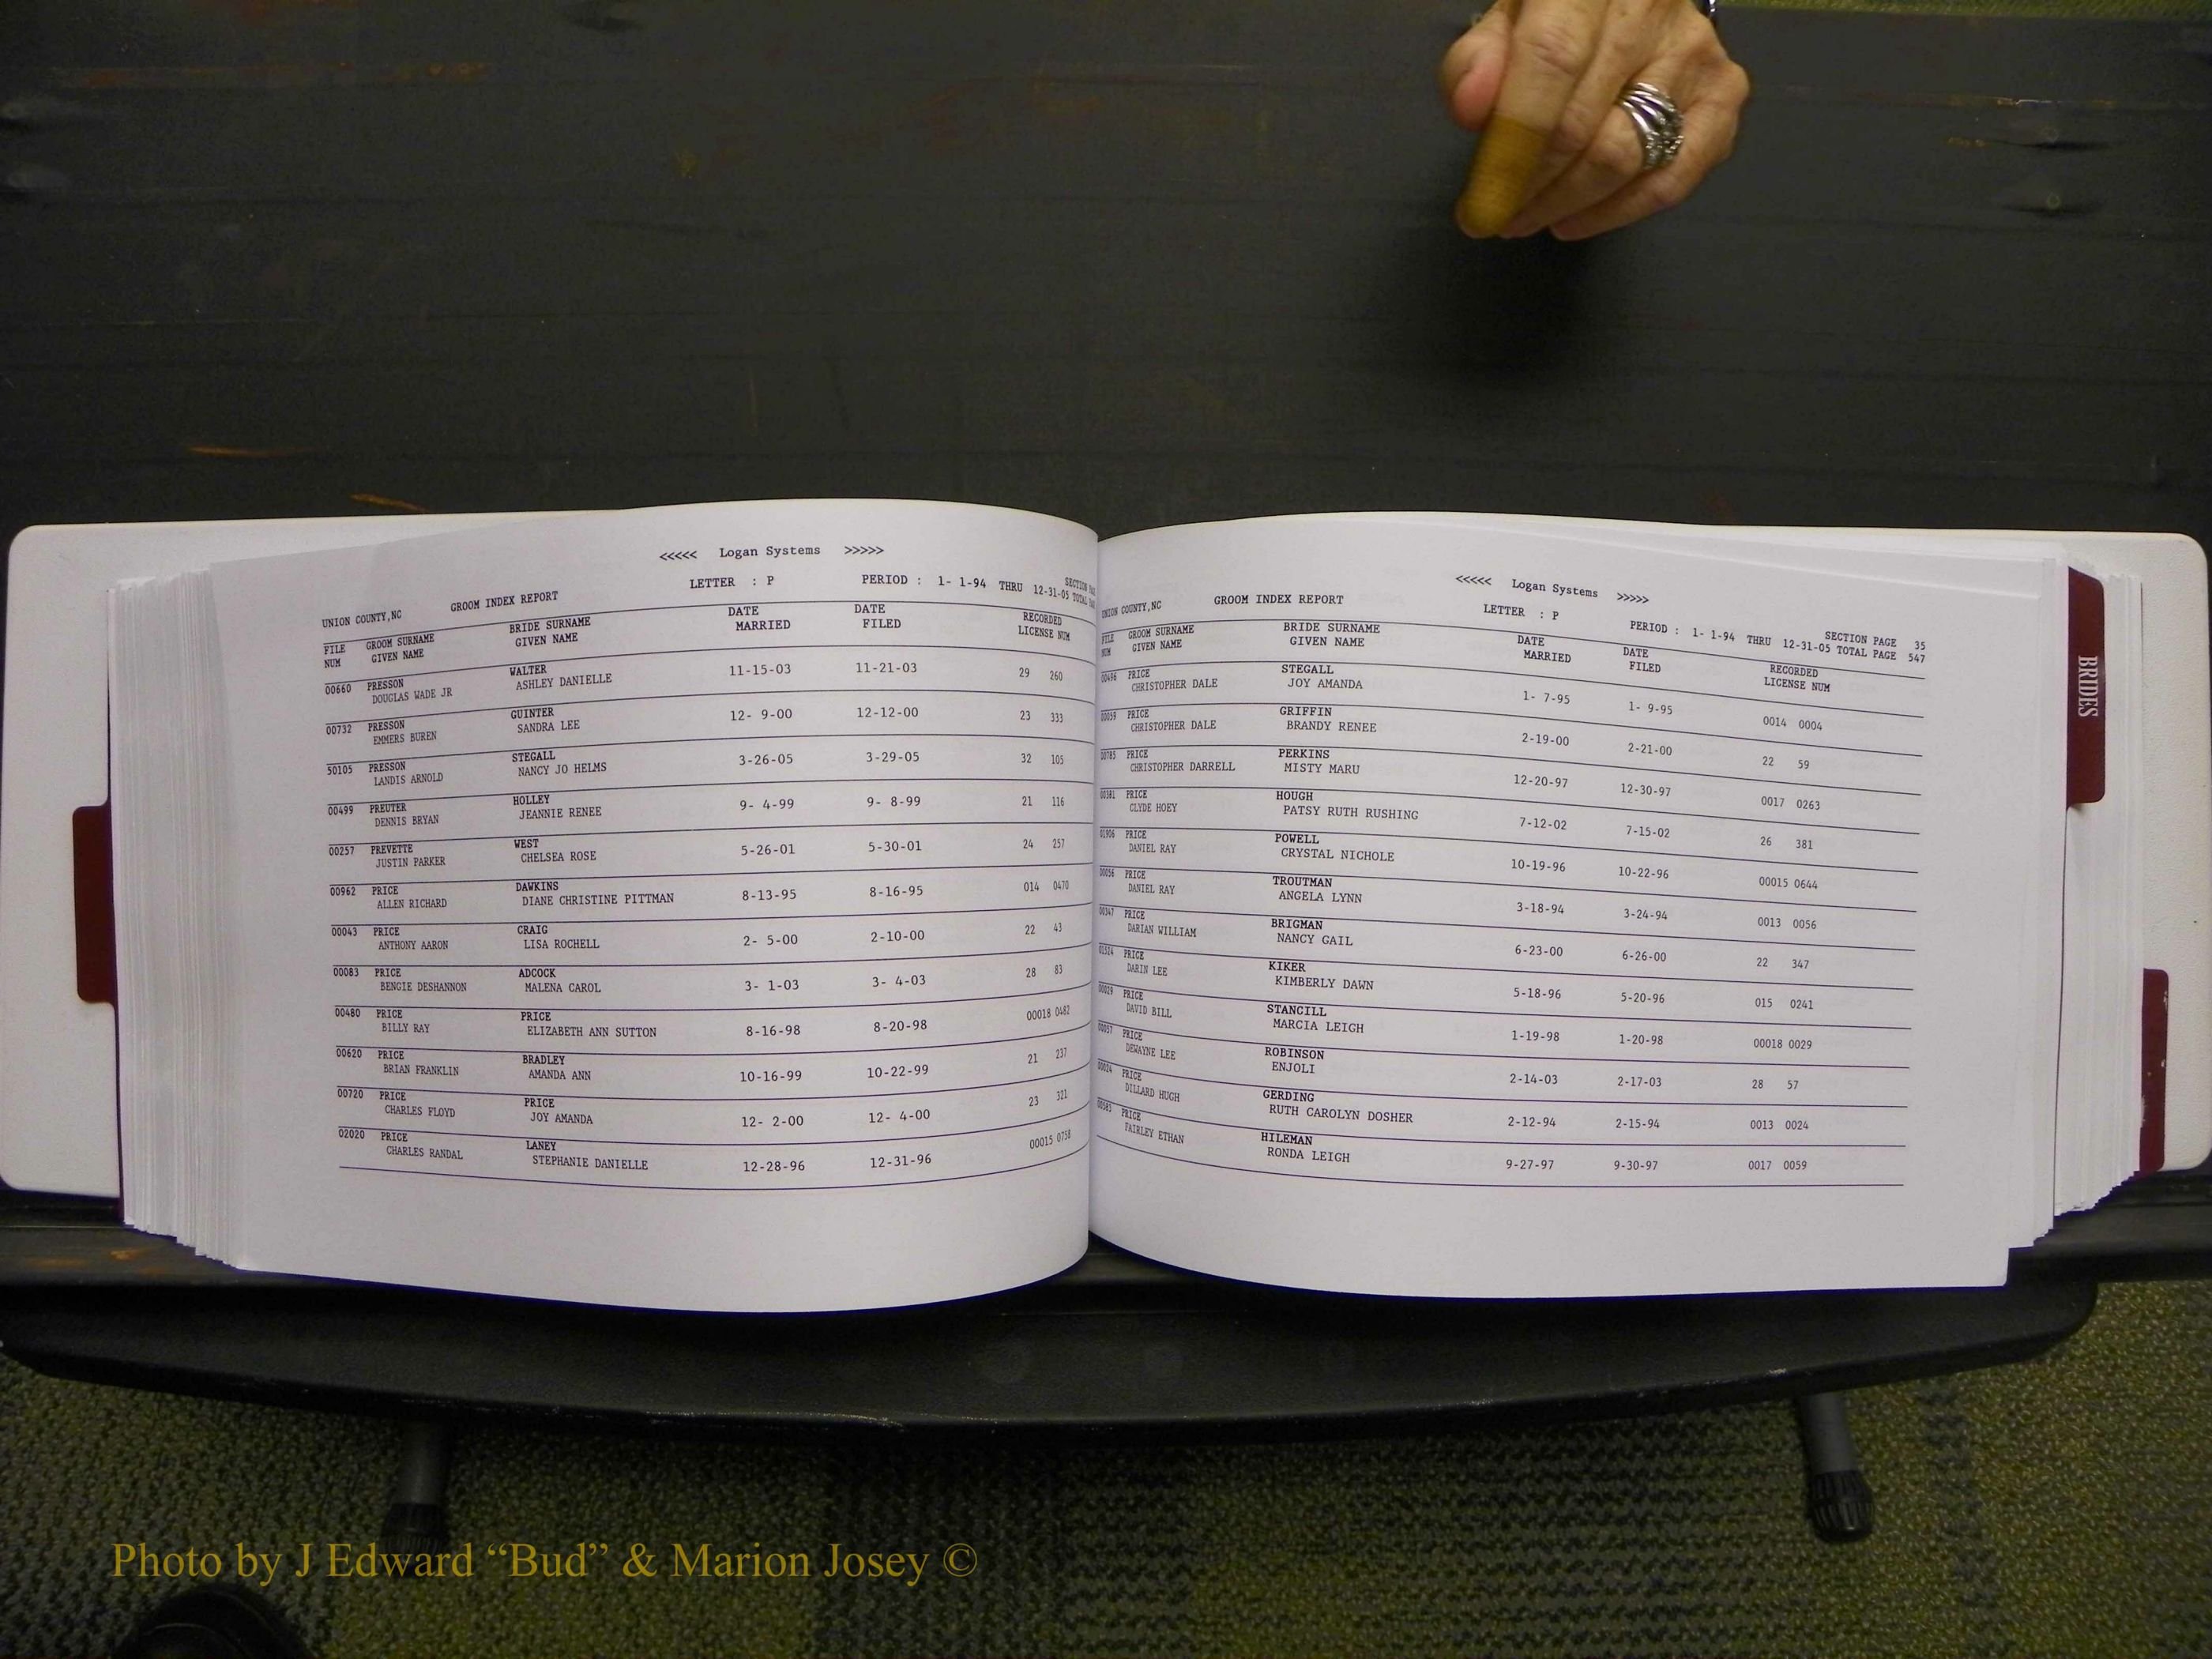 <<<<< Logan Systems >>>>>
UNION COUNTY,NC GROOM INDEX REPORT LETTER : P PERIOD : 1- 1-94 THRU 12-31-05 SECTION TOTAL
FILE NUM GROOM SURNAME GIVEN NAME BRIDE SURNAME GIVEN NAME DATE MARRIED DATE FILED RECORDED LICENSE NUM
00660 PRESSON WALTER 11-15-03 11-21-03 29 260
DOUGLAS WADE JR ASHLEY DANIELLE
00732 PRESSON GUINTER 12- 9-00 12-12-00 23 333
EMMERS BUREN SANDRA LEE
50105 PRESSON STEGALL 3-26-05 3-29-05 32 105
LANDIS ARNOLD NANCY JO HELMS
00499 PREUTER HOLLEY 9- 4-99 9- 8-99 21 116
DENNIS BRYAN JEANNIE RENEE
00257 PREVETTE WEST 5-26-01 5-30-01 24 257
JUSTIN PARKER CHELSEA ROSE
00962 PRICE DAWKINS 8-13-95 8-16-95 014 0470
ALLEN RICHARD DIANE CHRISTINE PITTMAN
00043 PRICE CRAIG 2- 5-00 2-10-00 22 43
ANTHONY AARON LISA ROCHELL
00083 PRICE ADCOCK 3- 1-03 3- 4-03 28 83
BENGIE DESHANNON MALENA CAROL
00480 PRICE PRICE 8-16-98 8-20-98 00018 0482
BILLY RAY ELIZABETH ANN SUTTON
00620 PRICE BRADLEY 10-16-99 10-22-99 21 237
BRIAN FRANKLIN AMANDA ANN
00720 PRICE PRICE 12- 2-00 12- 4-00 23 321
CHARLES FLOYD JOY AMANDA
02020 PRICE LANEY 12-28-96 12-31-96 00015 0758
CHARLES RANDAL STEPHANIE DANIELLE
<<<<< Logan Systems >>>>>
UNION COUNTY,NC GROOM INDEX REPORT LETTER : P PERIOD : 1- 1-94 THRU 12-31-05 SECTION PAGE 35 TOTAL PAGE 547
FILE NUM GROOM SURNAME GIVEN NAME BRIDE SURNAME GIVEN NAME DATE MARRIED DATE FILED RECORDED LICENSE NUM
00496 PRICE STEGALL 1- 7-95 1- 9-95 0014 0004
CHRISTOPHER DALE JOY AMANDA
00059 PRICE GRIFFIN 2-19-00 2-21-00 22 59
CHRISTOPHER DALE BRANDY RENEE
00785 PRICE PERKINS 12-20-97 12-30-97 0017 0263
CHRISTOPHER DARRELL MISTY MARU
00381 PRICE HOUGH 7-12-02 7-15-02 26 381
CLYDE HOEY PATSY RUTH RUSHING
01906 PRICE POWELL 10-19-96 10-22-96 00015 0644
DANIEL RAY CRYSTAL NICHOLE
00056 PRICE TROUTMAN 3-18-94 3-24-94 0013 0056
DANIEL RAY ANGELA LYNN
00347 PRICE BRIGMAN 6-23-00 6-26-00 22 347
DARIAN WILLIAM NANCY GAIL
01524 PRICE KIKER 5-18-96 5-20-96 015 0241
DARIN LEE KIMBERLY DAWN
00029 PRICE STANCILL 1-19-98 1-20-98 00018 0029
DAVID BILL MARCIA LEIGH
00057 PRICE ROBINSON 2-14-03 2-17-03 28 57
DEWAYNE LEE ENJOLI
00024 PRICE GERDING 2-12-94 2-15-94 0013 0024
DILLARD HUGH RUTH CAROLYN DOSHER
00583 PRICE HILEMAN 9-27-97 9-30-97 0017 0059
FAIRLEY ETHAN RONDA LEIGH
BRIDES
Photo by J Edward “Bud” & Marion Josey ©